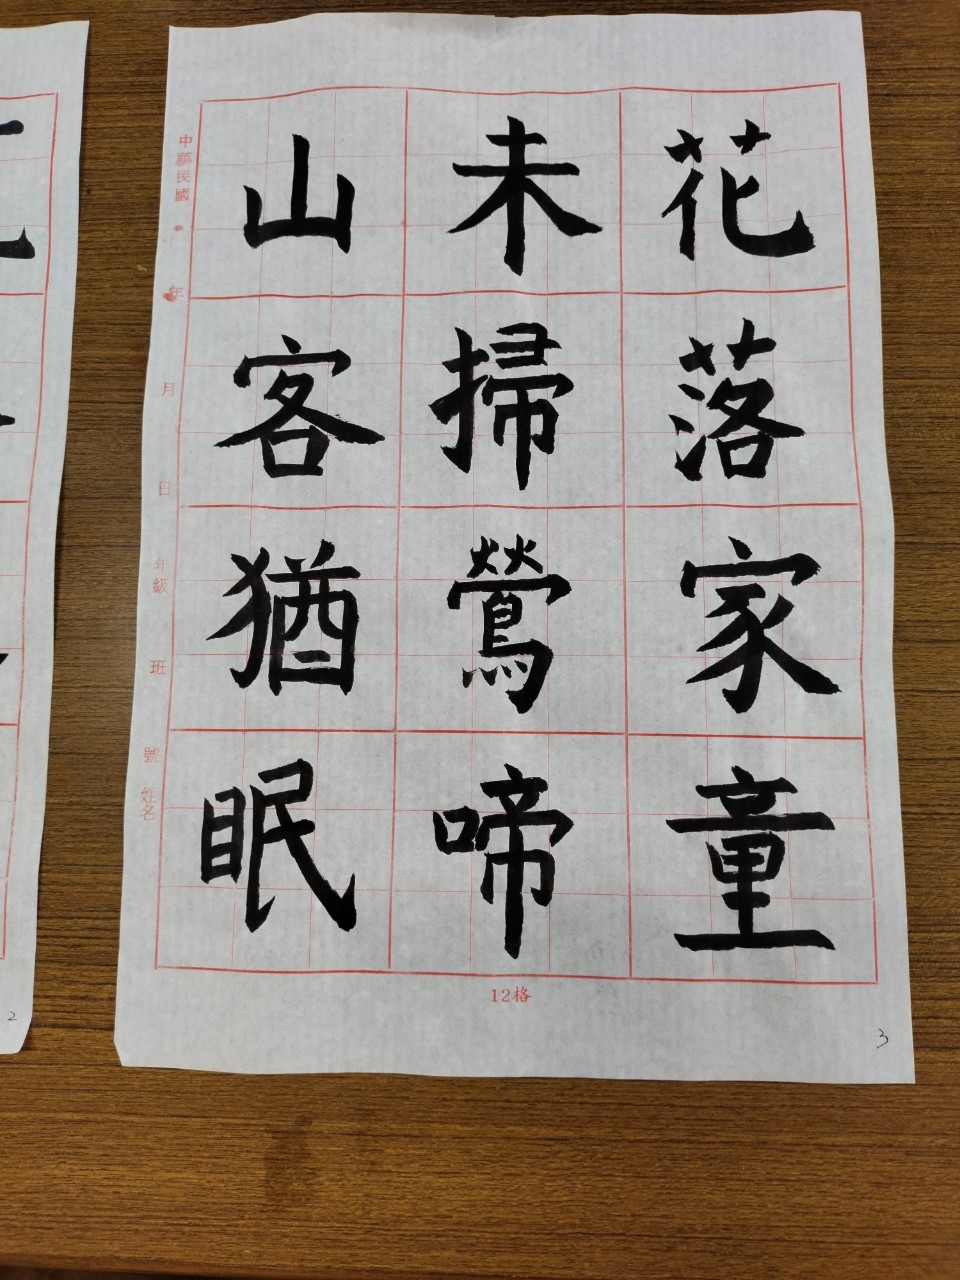 花落家童
未掃鶯啼
山客猶眠
中華民國 年 月 日 年級 班 號 姓名
12格
3
2